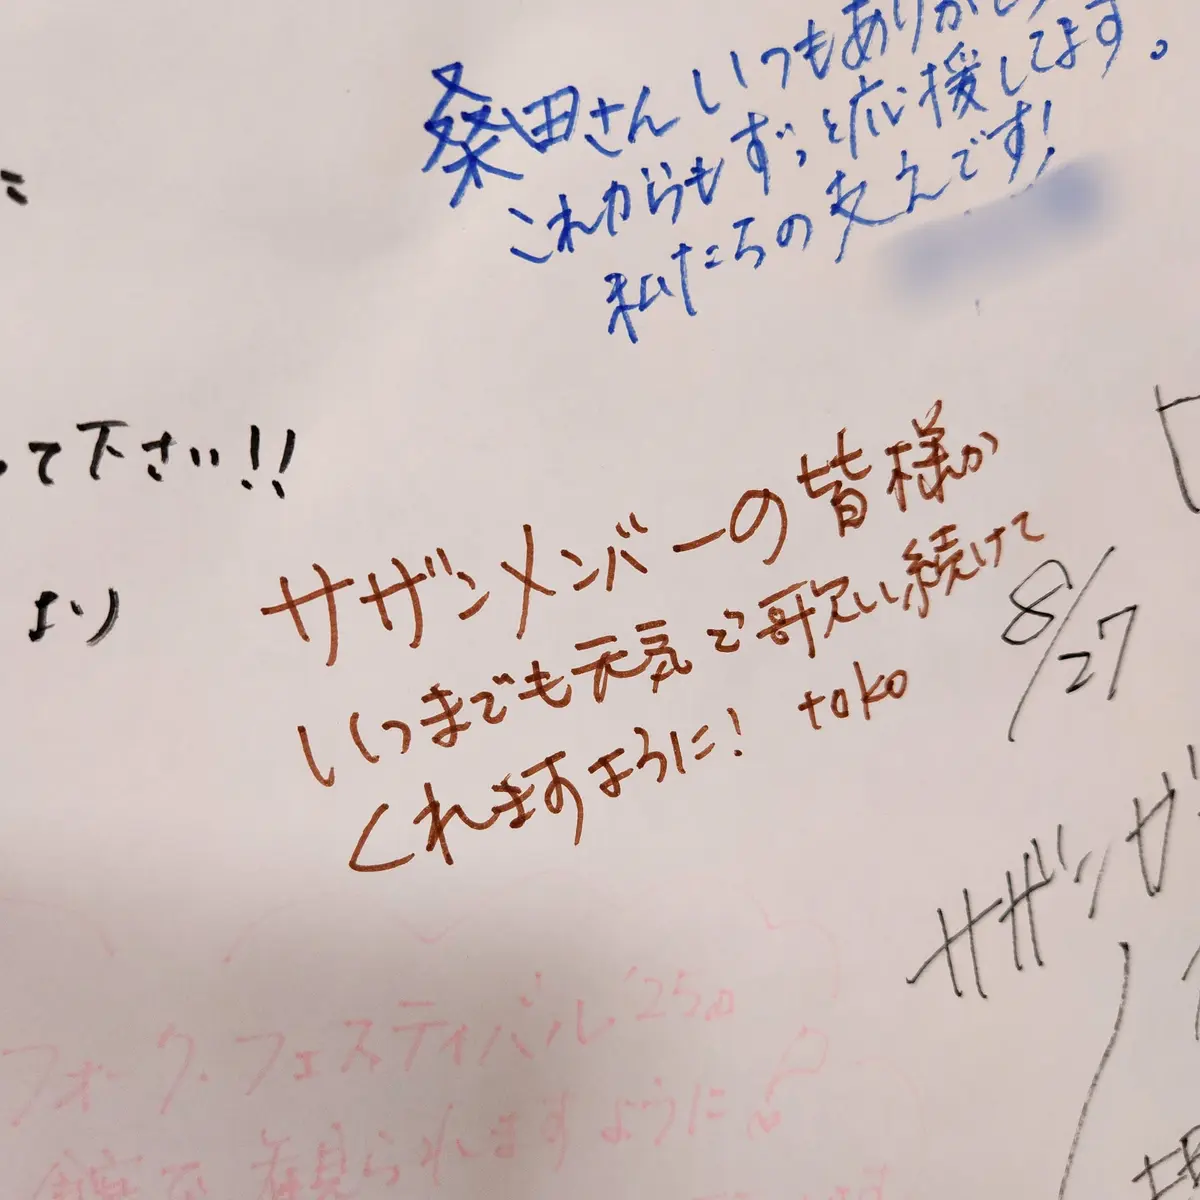 桑田さん いつもありがとう
これからもずっと応援してます。
私たちの支えです!
て下さい!!
より
サザンメンバーの皆様が
いつまでも元気で歌い続けて
くれますように! toko
8/27
サザン
フォーク・フェスティバル'25の
観られますように